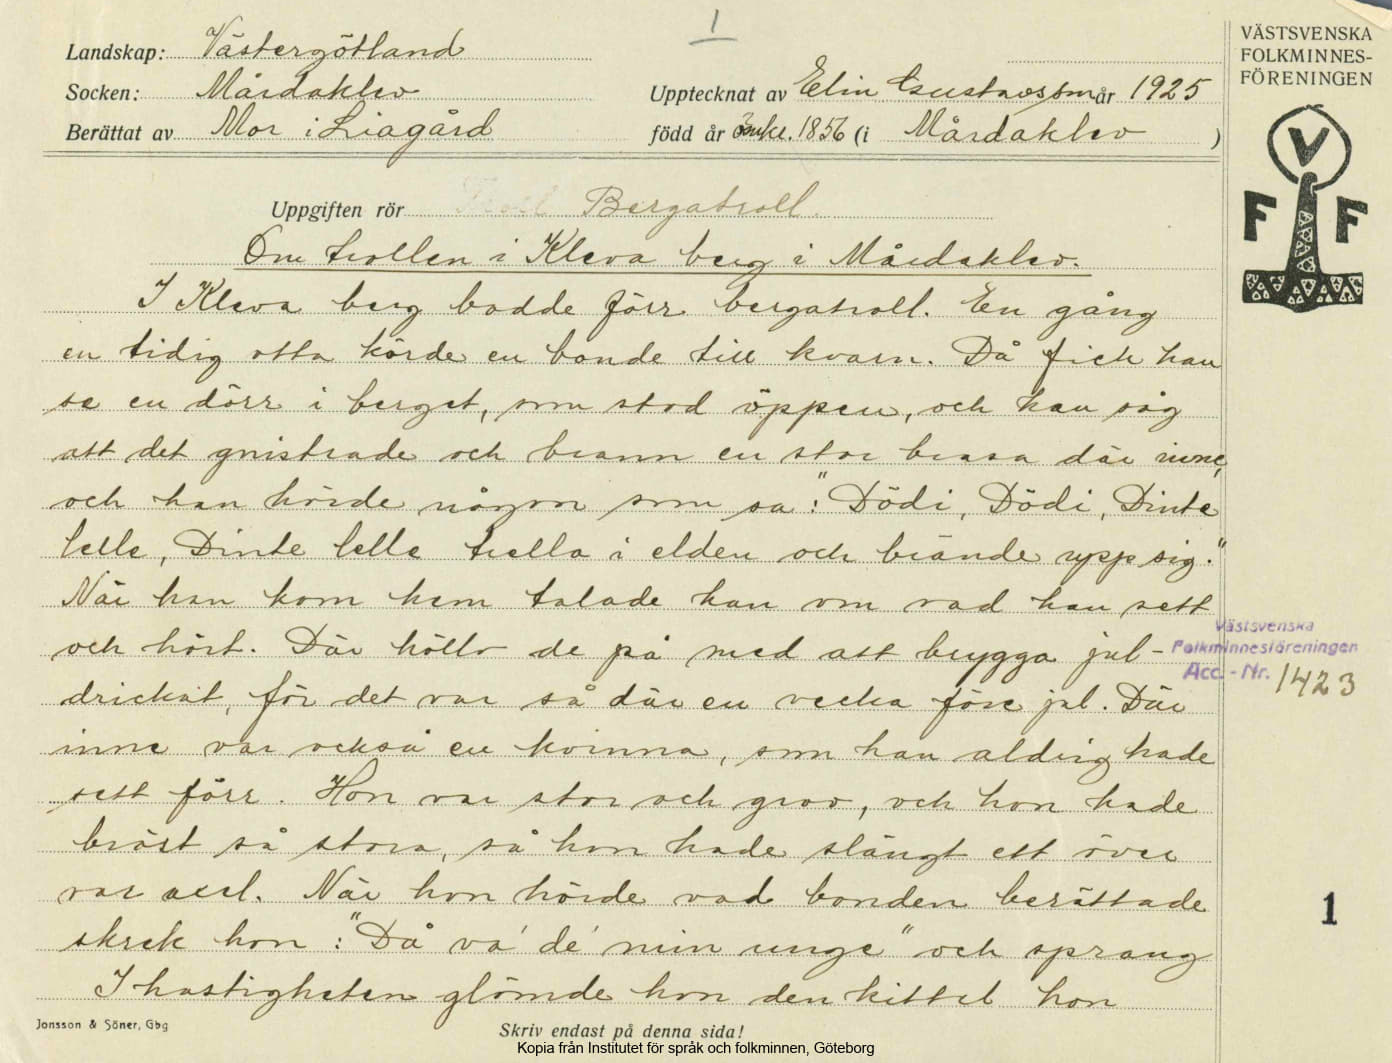 1
Landskap: Västergötland
Socken: Mårdaklev
Upptecknat av Elin Gustavsson år 1925
Berättat av Mor i Liagård
född år 1856 (i Mårdaklev)
VÄSTSVENSKA
FOLKMINNES-
FÖRENINGEN
V
F F
Uppgiften rör Bergatroll.
Om trollen i Kleva berg i Mårdaklev.
I Kleva berg bodde förr bergatroll. En gång
en tidig otta körde en bonde till kvarn. Då fick han
se en dörr i berget, som stod öppen, och han såg
att det gnistrade och brann en stor brasa där inne,
och han hörde någon som sa: "Dödi, Dödi, Dinte
lelle, Dinte lelle trella i elden och brände upp sig."
När han kom hem talade han om vad han sett
och hört. Där höllo de på med att brygga jul-
drickat, för det var så där en vecka före jul. Där
inne var också en kvinna, som han aldrig hade
sett förr. Hon var stor och grov, och hon hade
bröst så stora, så hon hade slängt ett över
var axel. När hon hörde vad bonden berättade
skrek hon: "Då va' de' min unge" och sprang
I hastigheten glömde hon den kittel hon
Västsvenska
Folkminnesföreningen
Acc.-Nr. 1423
1
Jonsson & Söner, Gbg
Skriv endast på denna sida!
Kopia från Institutet för språk och folkminnen, Göteborg